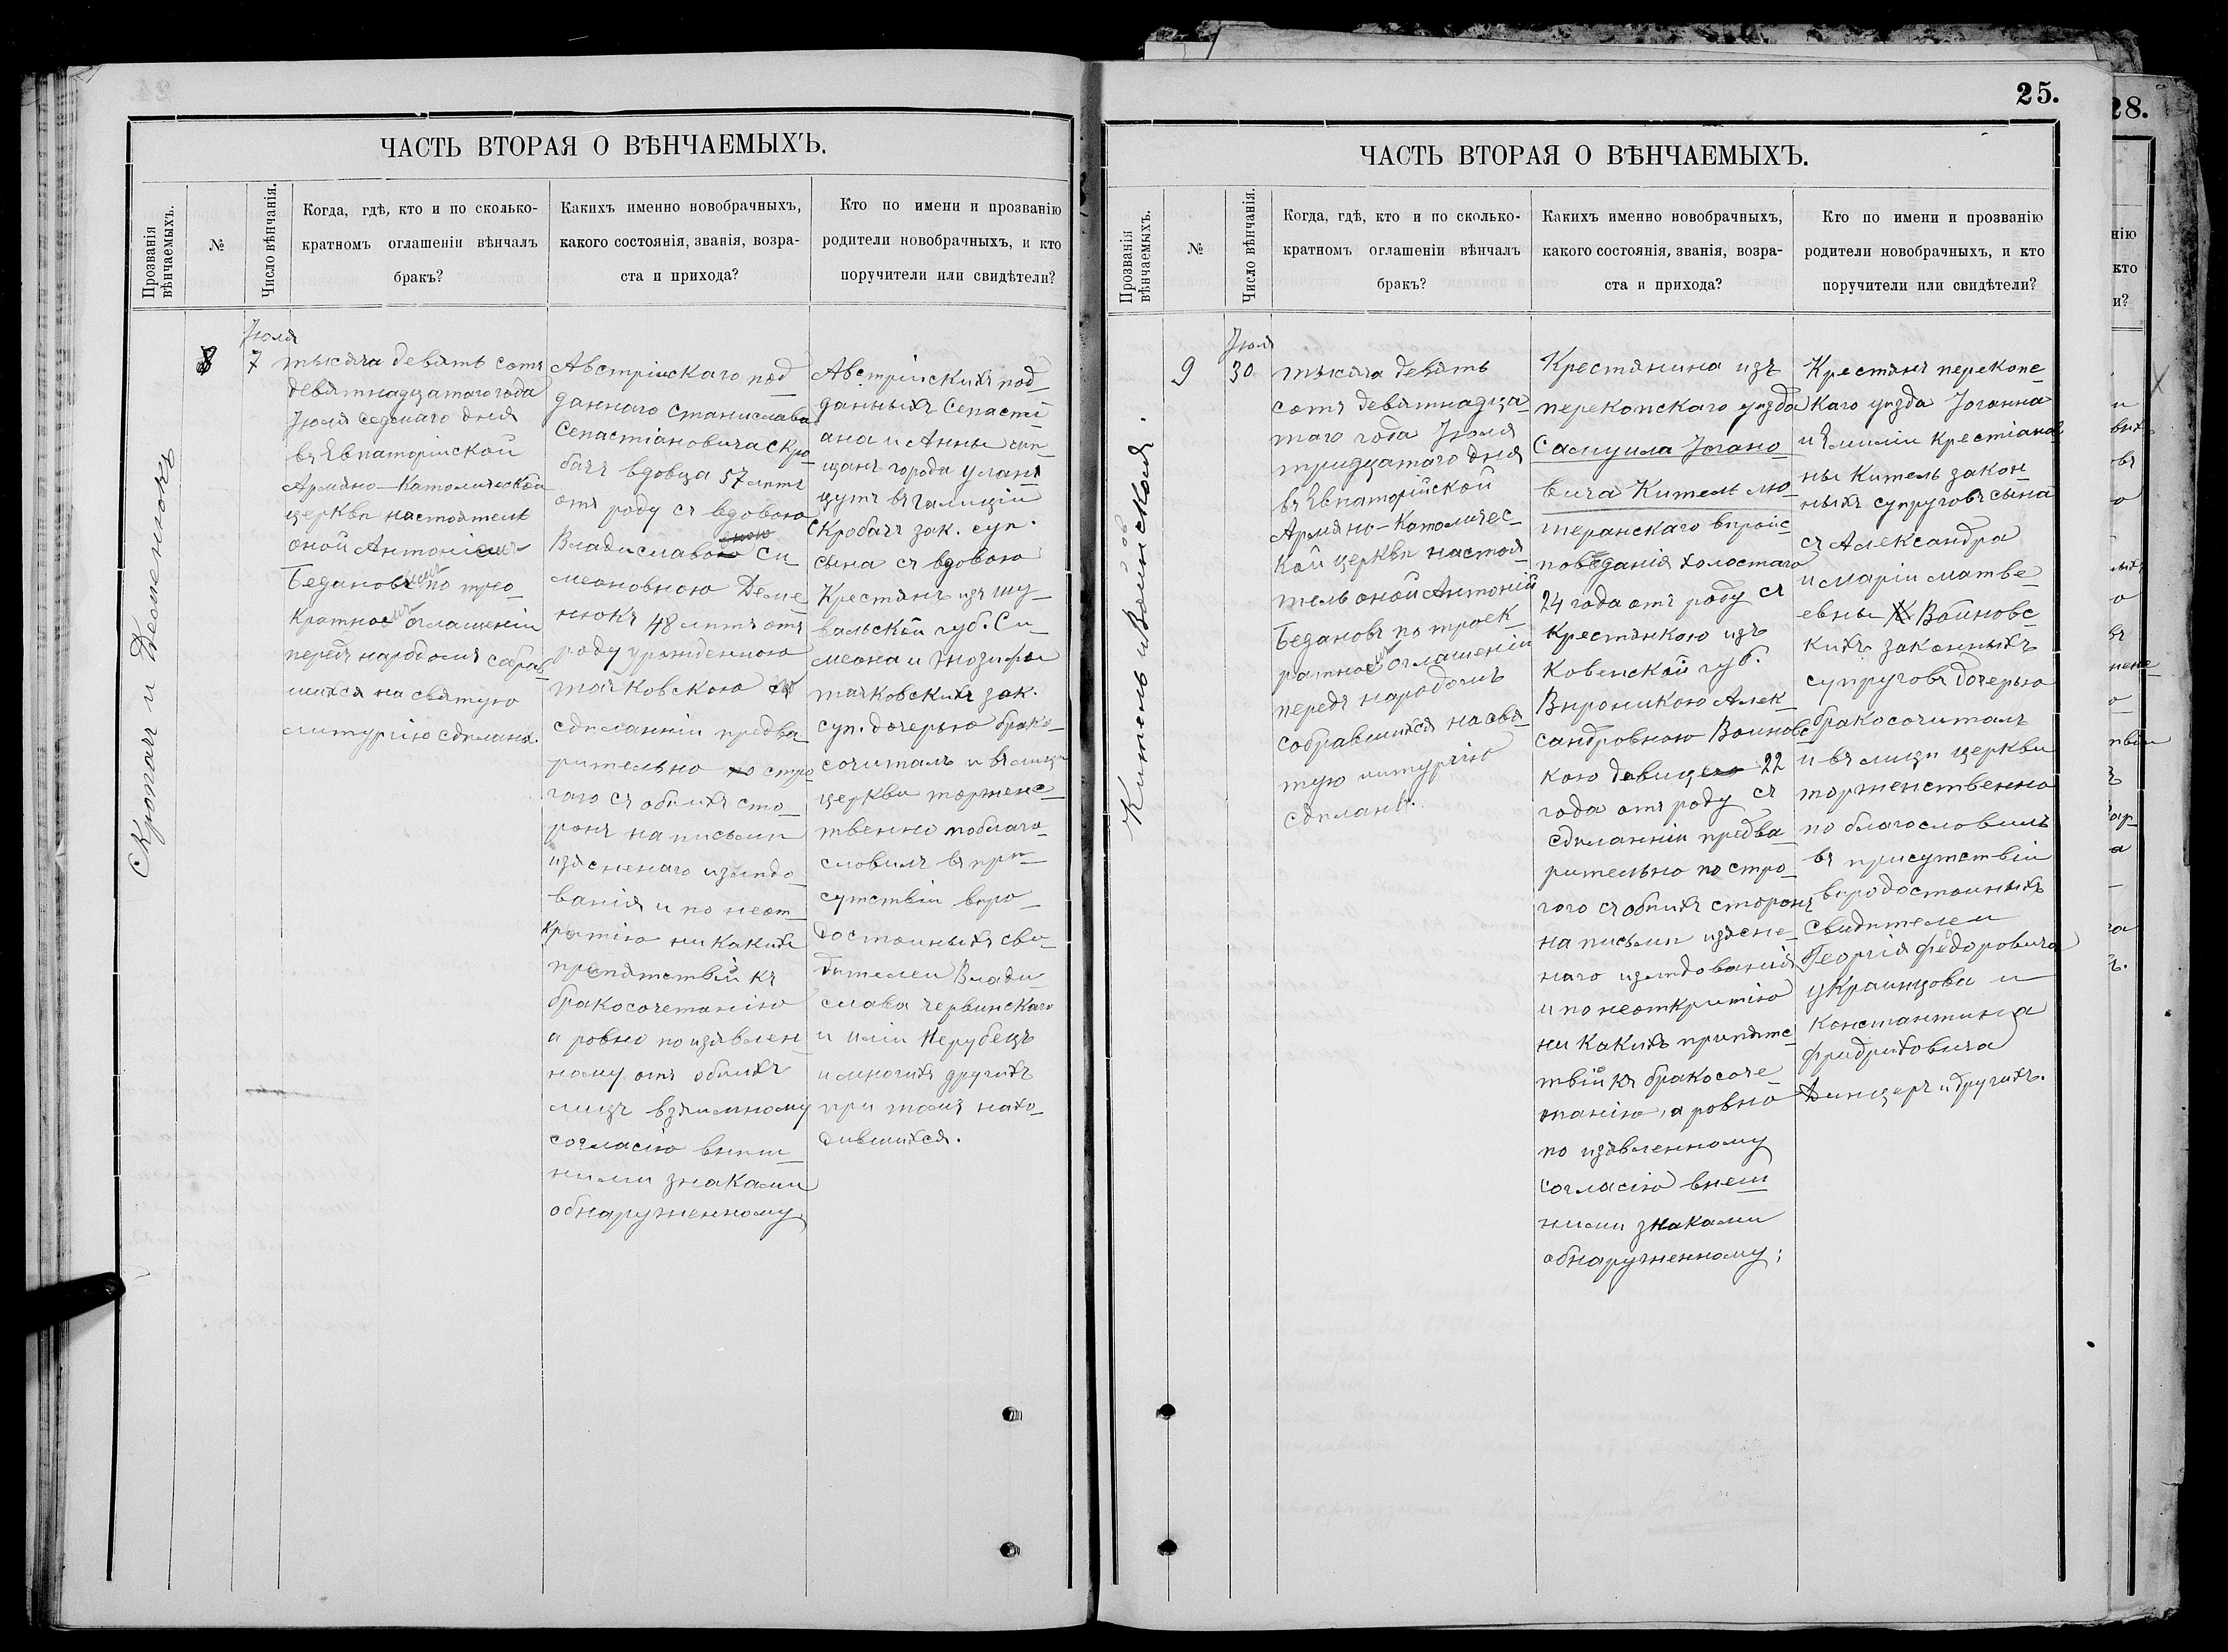 ЧАСТЬ ВТОРАЯ О ВѢНЧАЕМЫХЪ.
Прозванія
вѣнчаемыхъ.
№
Число вѣнчанія.
Когда, гдѣ, кто и по сколько-
кратномъ оглашеніи вѣнчалъ
бракъ?
Какихъ именно новобрачныхъ,
какого состоянія, званія, возра-
ста и прихода?
Кто по имени и прозванію
родители новобрачныхъ, и кто
поручители или свидѣтели?
Скропачъ и Деменюкъ
8
Іюля
7
тысяча девять сотъ
девятнадцатаго года
Іюля седмаго дня
въ Евпаторійской
Армяно-Католической
церкви настоятель
оной Антоній
Бедановъ по трео-
кратномъ оглашеніи
передъ народомъ собрав
шихся на святую
литургію сдѣланъ.
Австрійскаго под
даннаго Станислава
Сепастіановича Скро-
бачъ вдовца 57 лѣтъ
отъ роду съ вдовою
Владиславою Си
меоновною Деме
нюкъ 48 лѣтъ отъ
роду урожденною
тачковскою
сдѣланніи предва
рительно по стро
гаго съ обѣихъ сто-
ронъ на письмѣ
изясненаго излѣдо-
ванія и по неот-
крытію ни какихъ
препятствій къ
бракосочетанію
а ровно по изявлен
ному отъ обѣихъ
лицъ взаимному
согласію внѣш-
ними знаками
обнаруженному,
Австрійскихъ под
данныхъ Сепасті
ана и Анны
щанъ города улани
цутъ въ Галиціи
Скробачъ зак. суп.
сына съ вдовою
Крестянъ изъ шу-
вальской губ. Си-
меона и Іюзифы
тачковскихъ зак.
суп. дочерью брако-
сочиталъ и въ лицѣ
церкви торжес-
твенно поблаго-
словилъ въ при-
сутствіи вѣро-
достойныхъ сви-
дѣтелей Влади-
слава Червинскаго
и иліи Нерубецъ
и многихъ другихъ
при томъ нахо-
дившихся.
25.
ЧАСТЬ ВТОРАЯ О ВѢНЧАЕМЫХЪ.
Прозванія
вѣнчаемыхъ.
№
Число вѣнчанія.
Когда, гдѣ, кто и по сколько-
кратномъ оглашеніи вѣнчалъ
бракъ?
Какихъ именно новобрачныхъ,
какого состоянія, званія, возра-
ста и прихода?
Кто по имени и прозванію
родители новобрачныхъ, и кто
поручители или свидѣтели?
Китель и Воиновская.
9
Іюля
30
тысяча девять
сотъ девятнадца-
таго года Іюля
тридцатаго дня
въ Евпаторійской
Армяно-Католичес-
кой церкви настоя-
тель оной Антоній
Бедановъ по троек-
ратномъ оглашеніи
передъ народомъ
собравшихся на свя-
тую литургію
сдѣланъ.
Крестянина изъ
перекопскаго уѣзда
Самуила Іогано-
вича Китель лю-
теранскаго вѣроис-
поведанія холостаго
24 года отъ роду съ
крестянкою изъ
Ковенской губ.
Вѣроникою Алек-
сандровною Воиновс
кою девицею 22
года отъ роду съ
сдѣланніи предва
рительно по стро-
гаго съ обѣихъ сторонъ
на письмѣ изясне-
наго излѣдованія
и по неоткритію
ни какихъ препятс-
твій къ бракосоче-
танію, а ровно
по изявленному
согласію внеш
ними знаками
обнаруженному;
Крестянъ перекопс-
каго уѣзда Іоганна
и Емиліи Крестіанов
ны Китель закон
ныхъ супруговъ сына
съ Александра
и Маріи матве-
евны Воиновс-
кихъ законныхъ
супруговъ дочерью
бракосочиталъ
и въ лицѣ церкви
торжественно
по благословилъ
въ присутствіи
вѣродостойныхъ
свидѣтелей
Георгія Федоровича
Украинцова и
Константина
Фридриховича
Динцеръ и другихъ.
28.
нію
кто
и?